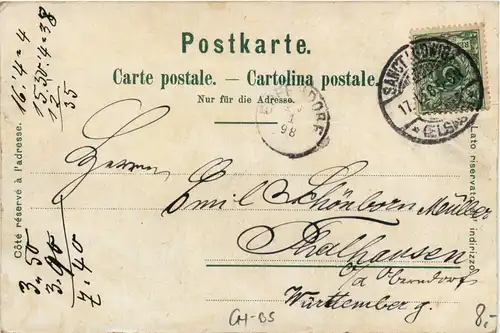 Postkarte.
Carte postale. — Cartolina postale.
Nur für die Adresse.
Côté réservé à l'adresse.
Lato riservato indirizzo
SANCT LUDWIG
17.
* (ELSASS)
1
98
Herrn
Emil Schönborn Müller
Thalhausen
o/a Oberndorf
Württemberg.
16.'4=4
15.30.'4=38
12
35
3.50
3.90
7.40
CH-BS
8.-